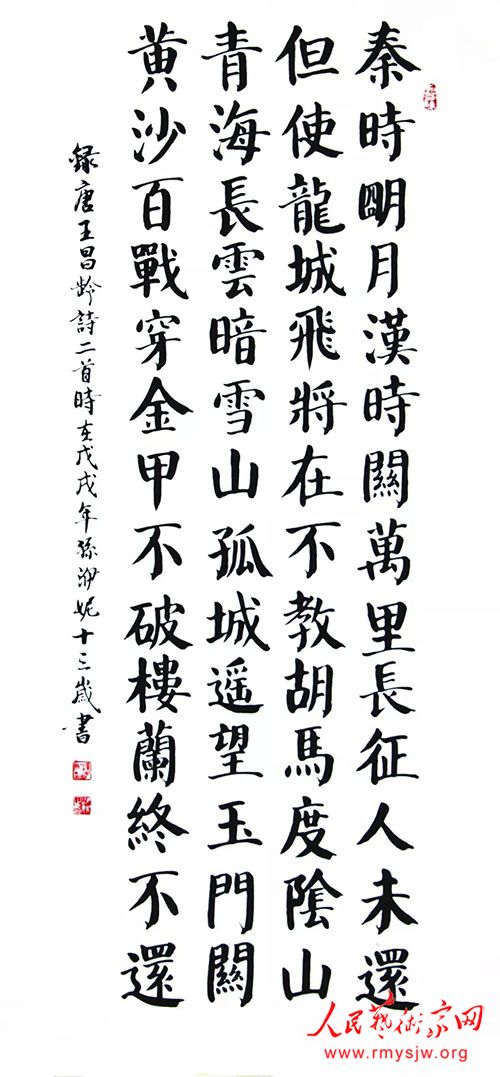 秦時明月漢時關萬里長征人未還
但使龍城飛將在不教胡馬度陰山
青海長雲暗雪山孤城遥望玉門關
黄沙百戰穿金甲不破樓蘭終不還
録唐王昌龄詩二首時在戊戌年孫伊妮十三歲書
人民藝術家网
www.rmysjw.org